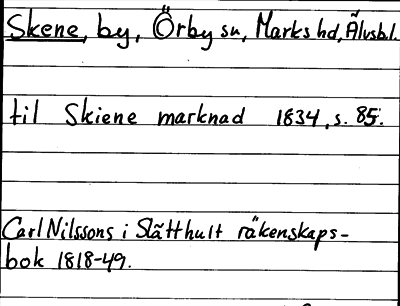 Skene, by, Örby sn, Marks hd, Älvsbl.
til Skiene marknad 1834, s. 85.
Carl Nilssons i Slätthult räkenskaps-
bok 1818-49.